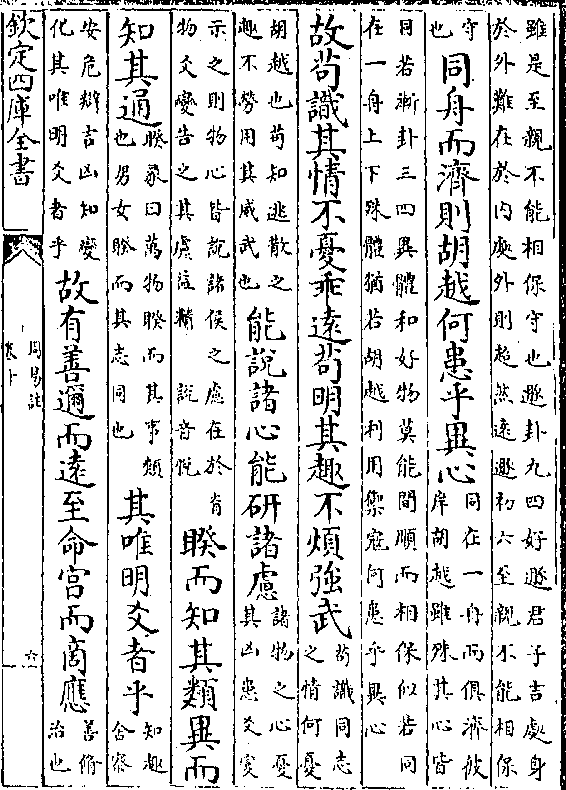 雖是至親不能相保守也遯卦九四好遯君子吉處身
於外難在於内處外則超然遠遯初六至親不能相保
守也
同舟而濟則胡越何患乎異心
同在一舟而俱濟彼
岸胡越雖殊其心皆
同若漸卦三四異體和好物莫能間順而相保似若同
在一舟上下殊體猶若胡越利用禦寇何患乎異心
故苟識其情不憂乖遠苟明其趣不煩強武
苟識同志
之情何憂
胡越也苟知逃散之
趣不勞用其威武也
能說諸心能研諸慮
諸物之心憂
其凶患爻變
示之則物心皆說諸侯之慮在於育
物爻變告之其慮益精 說音悅
睽而知其類異而
知其通
睽彖曰萬物睽而其事類
也男女睽而其志同也
其唯明爻者乎
知趣
舍察
安危辯吉凶知變
化其唯明爻者乎
故有善邇而遠至命宮而商應
善脩
治也
欽定四庫全書
周易註
卷十
六